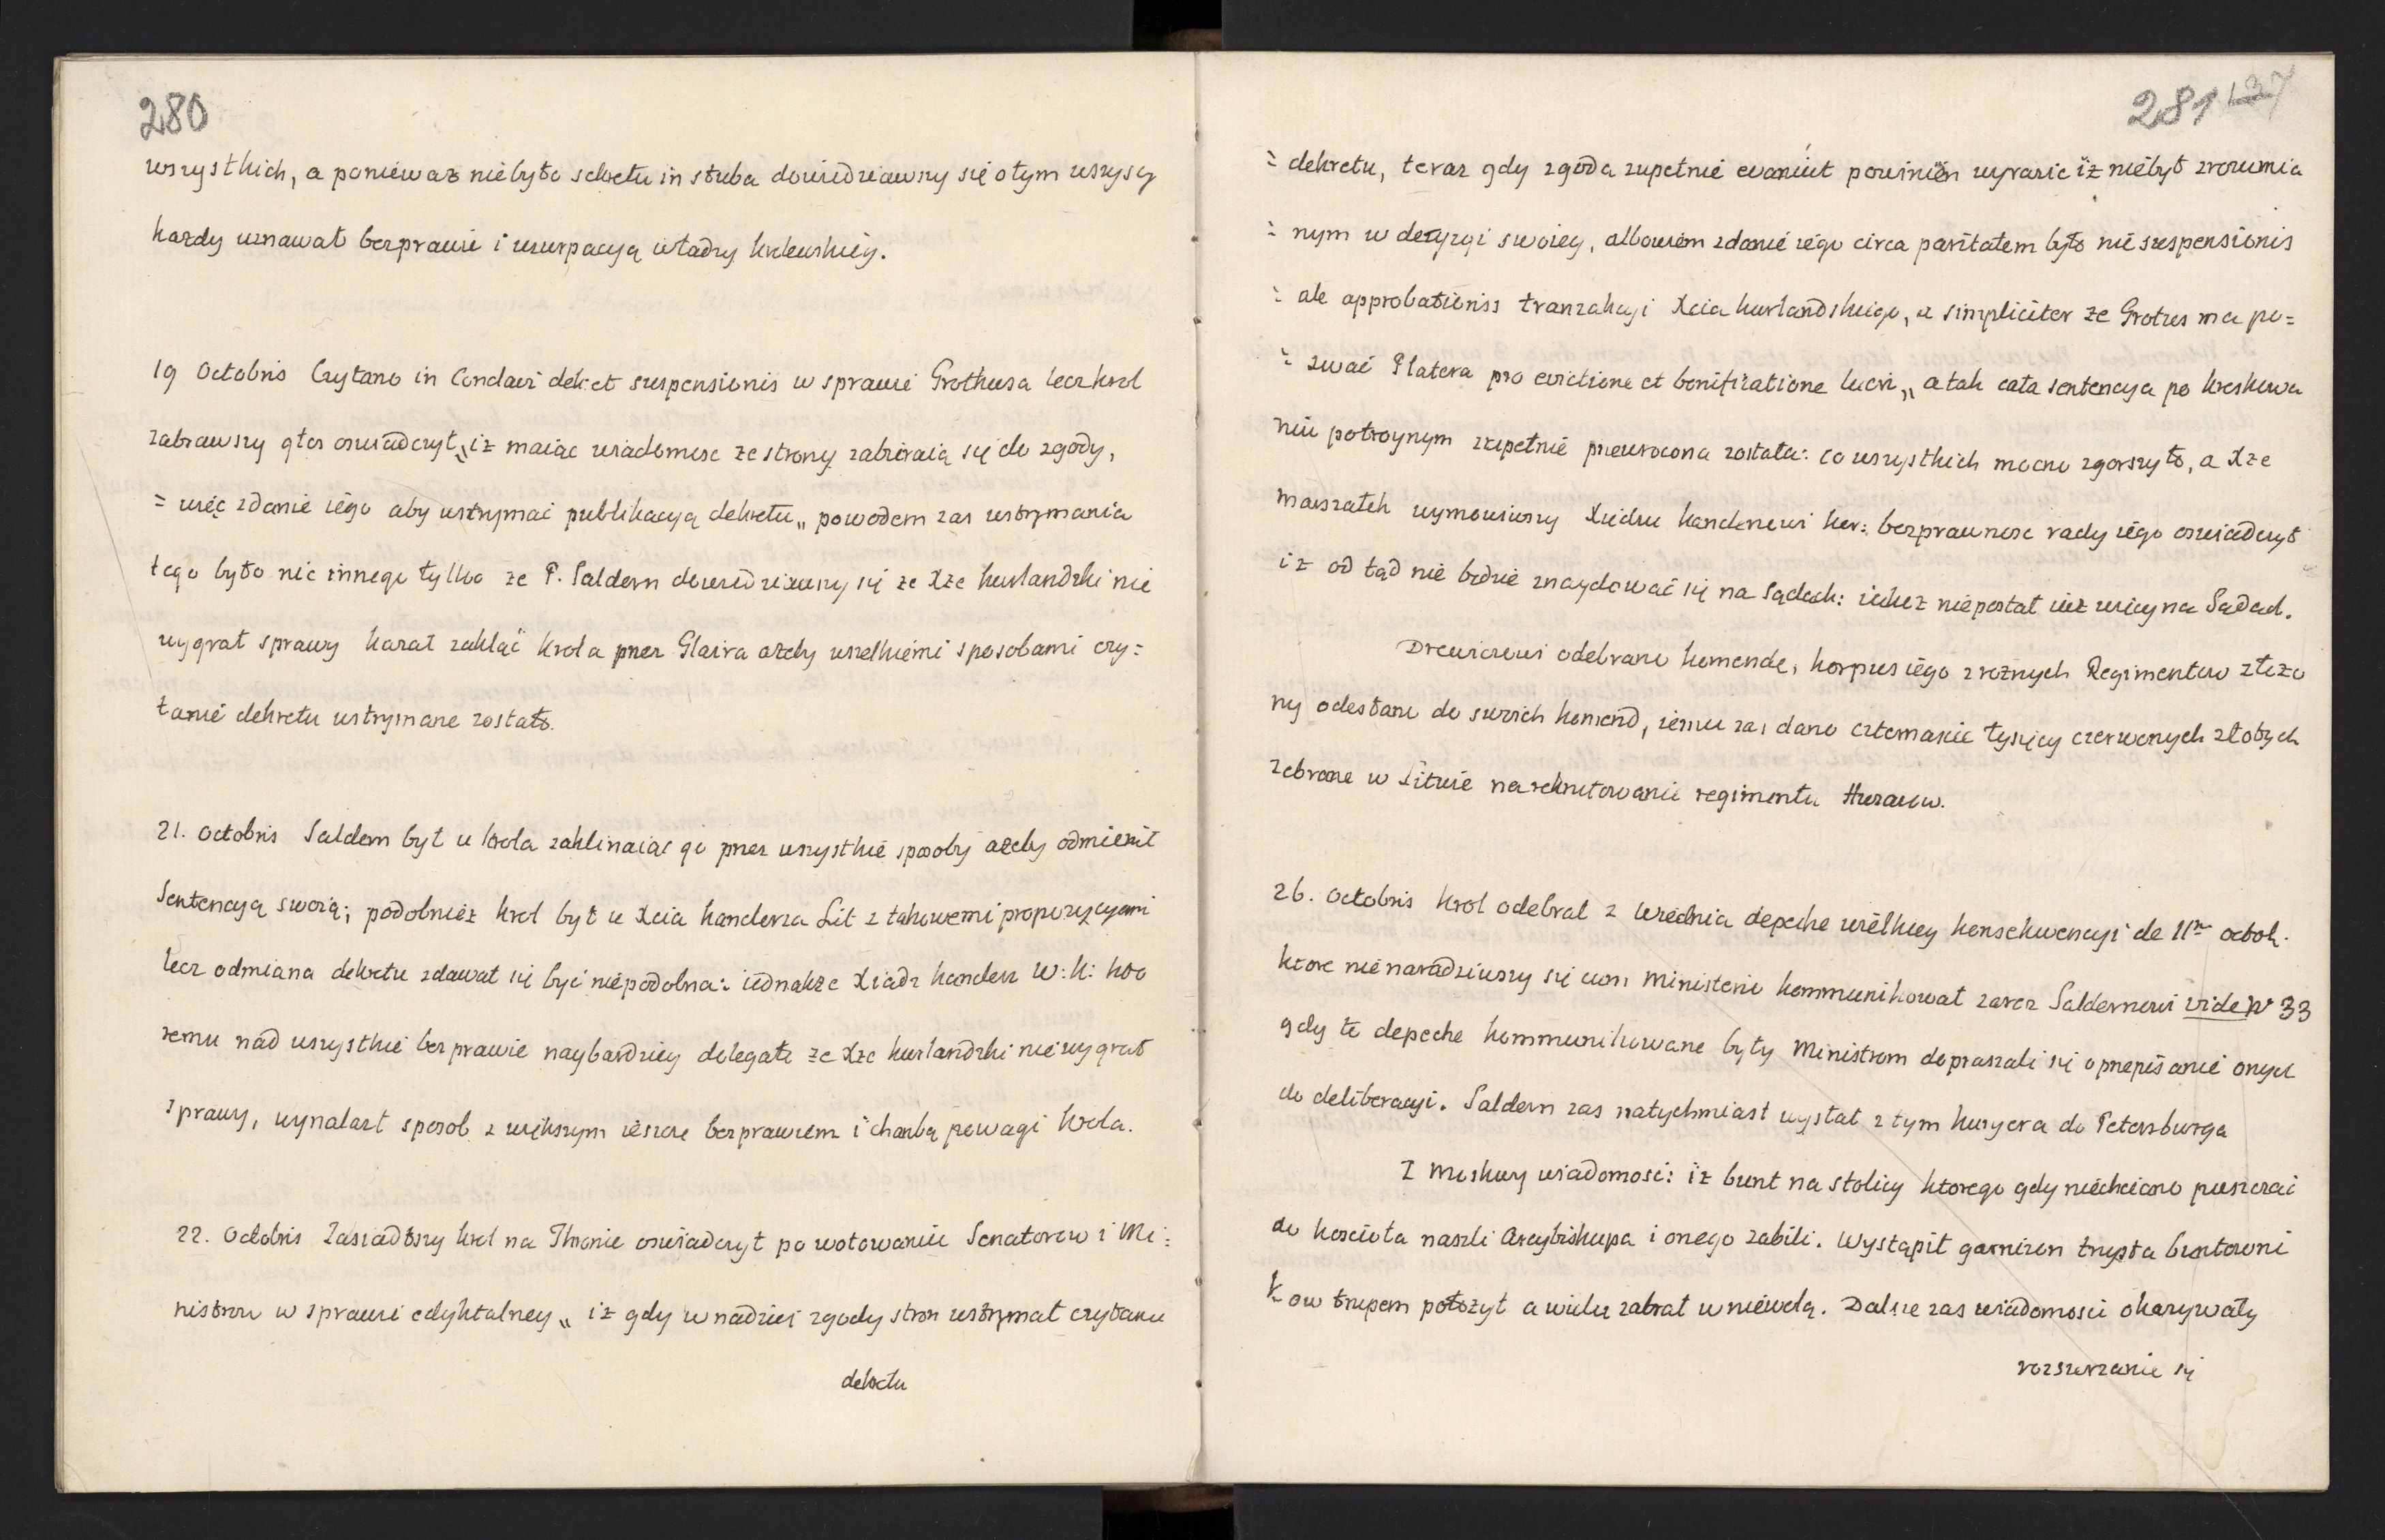 280
wszystkich, a poniéwaz niébyło sekretu in stuba dowiedziawszy się o tym wszyscy
kazdy uznawał bezprawie i uzurpacyą władzy krolewskiéy.
19 Octobris Czytano in Conclavi dekret suspensionis w sprawie Grothusa lecz krol
zabrawszy głos oswiadczył „iz maiąc wiadomosc ze strony zabiéraią się do zgody,
= więc zdanie iégo aby wstrzymać publikacyą dekretu„ powodem zas wstrzymania
tego było nic innego tylko ze P. Saldern dowiedziawszy się ze Xze kurlandzki nie
wygrał sprawy kazał zakląć krola przez Glaira azeby wszelkiémi sposobami czy=
tanié dekretu wstrzymane zostało.
21. Octobris Saldern był u krola zaklinaiąc go przez wszystkié sposoby azeby odmiénił
Sentencyą swoią; podobniéz krol był u Xcia kanclerza Lit z takowemi propozycyami
lecz odmiana dekretu zdawał się być niépodobna: iédnakze Xiądz kanclerz W: K: kto
remu nad wszystkié bezprawie naybardziey dolegało ze Xze kurlandzki niéwygrał
sprawy, wynalazł sposob z większym ieszcze bezprawiem i chanbą powagi krola.
22. Octobris Zasiadłszy krol na Thronie oswiadczył po wotowaniu Senatorow i Mi:
nistrow w sprawie edyktalney „ iz gdy w nadziei zgody stron wstrzymał czytanie
dekretu
281 137
= dekretu, teraz gdy zgoda zupełnié evaniut powinién wyrazic iz niébył zrozumia
= nym w decyzyi swoiey, albowiém zdanié iégo circa paritatem było nié suspensionis
= ale approbationiss tranzakcyi Xcia kurlandzkiégo, a simpliciter ze Grotus ma po=
= zwać Platera pro evictione et bonificatione lucri„ a tak cała sentencya po kreskowa
niu potroynym zupełnié przewrocona została: co wszystkich mocno zgorszyło, a Xze
marszałek wymowiwszy Xiędzu kanclerzowi kor: bezprawnosc rady iégo oswiadczył
iz od tąd nié będzié znaydować się na Sądach: iakoz niépostał iuz wiécy na Sadach.
Drewiczowi odebrano komendę, korpus iégo z roznych Regimentow złozo
ny odesłano do swoich komend, iému zas dano czternascie tysięcy czerwonych złotych
zebrane w Litwie na rekrutowanié regimentu Huzarow.
26. Octobris krol odebrał z Wiédnia depeche wiélkiey konsekwencyi de 11ma octob.
ktore nié naradziwszy się cum Ministerio kommunikował zaraz Saldernowi vide N 33
gdy te depeche kommunikowane były Ministrom dopraszali się o przepisanié onych
do deliberacyi. Saldern zas natychmiast wysłał z tym kuryera do Petersburga
Z Moskwy wiadomosć: iz bunt na stolicy ktorego gdy niéchciano puszczać
do kosciéła naszli Arcybiskupa i onego zabili. Wystąpił garnizon trzysta buntowni
kow trupem położył a wielu zabrał w niéwolą. Dalsze zas wiadomosci okazywały
rozszerzanie się